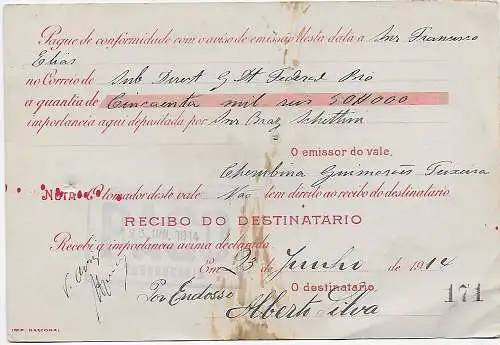 Pague de conformidade com o aviso de emissão desta data a Snr Francisco
Elias
no Correio de Sub Direct G St Federal Rio
a quantia de Cincoenta mil reis 50$000
importancia aqui depositada por Snr Braz Schettini
O emissor do vale,
Cherubina Guimarães Teixeira
NOTA: O tomador deste vale Não tem direito ao recibo do destinatario.
RECIBO DO DESTINATARIO
Recebi a importancia acima declarada.
Em 23 de Junho de 1914
O destinatario,
Por Endosso Alberto Silva
171
IMP. NACIONAL